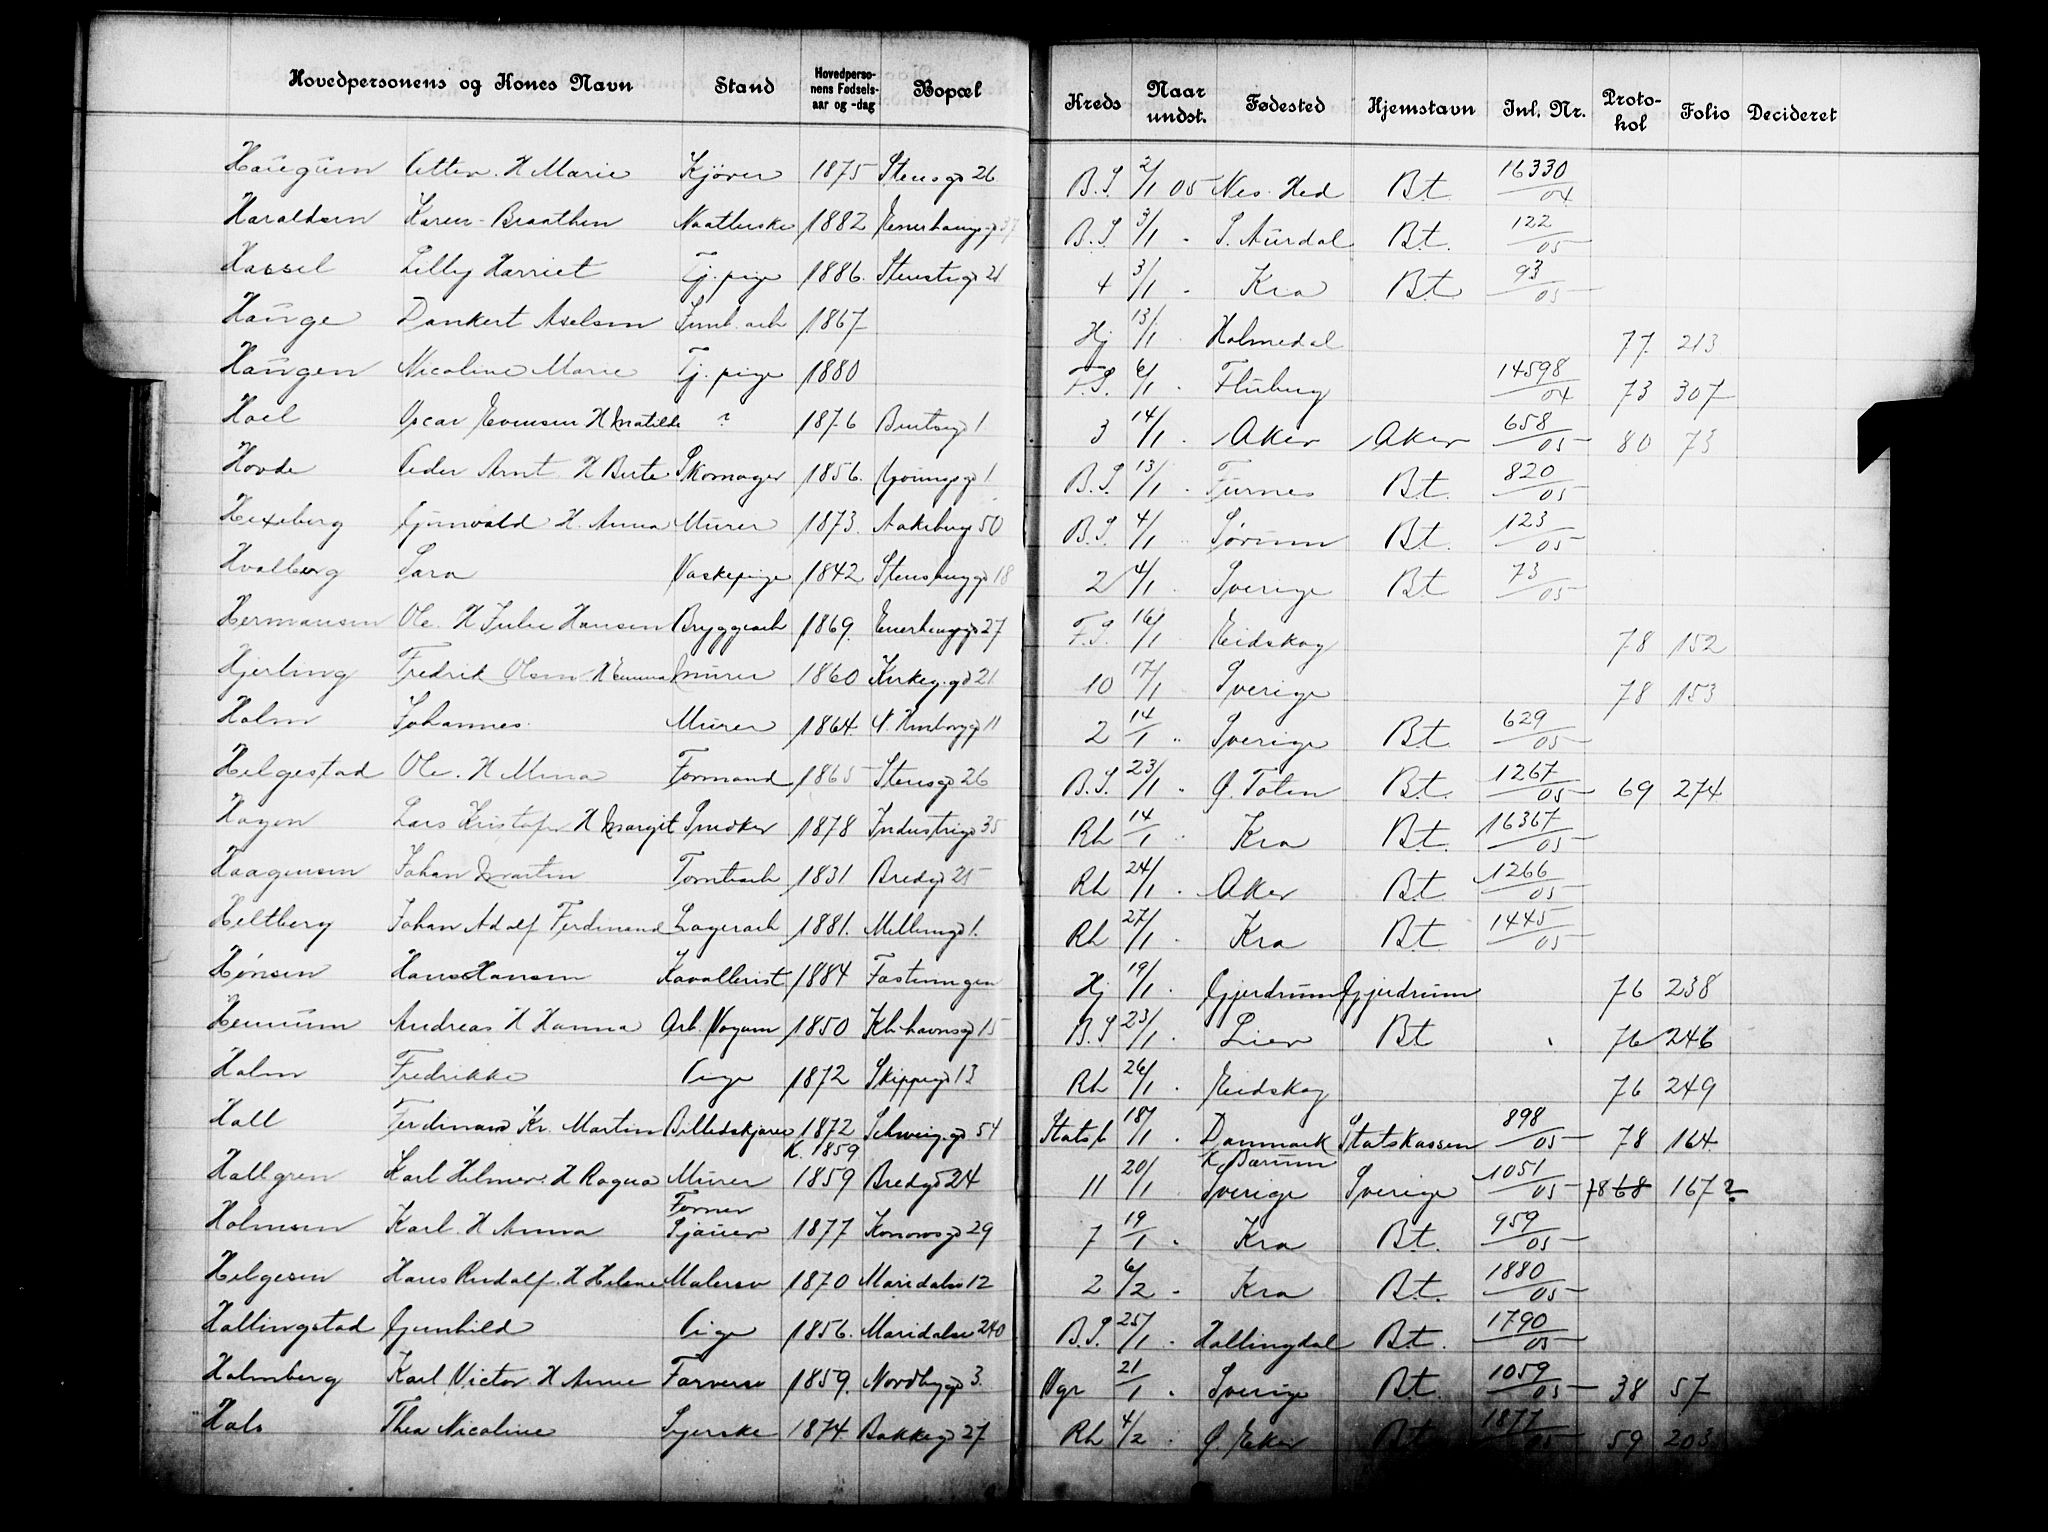 Hovedpersonens og Kones Navn Stand Hovedpersonens Fødselsaar og -dag Bopæl Kreds Naar undst. Fødested Hjemstavn Inl. Nr. Protokol Folio Decideret
Haugum Otten. H Marie Kjører 1875 Stensgd 26 B.S. 2/1 05 Nes. Hed Bt 16330/04
Haraldsen Karen Braathen 1882 37 B.S. 3/1 " S. Aurdal Bt. 122/05
Hassel Lilly Harriet Tj. pige 1886. 21 4 3/1 " Kra Bt 93/05
Hauge Dankert Axelsen arb 1867 Hj 13/1 " Holmedal 77. 213
Haugen Nicoline Marie Tj. pige 1880 F.S. 6/1 " Fluberg 14598/04 73 307
Hoel Oscar Evensen H Matilde ? 1876 1 3 14/1 " Aker Aker 658/05 80 73
Hovde Peder Arnt H Berte Skomager 1856. 1 B.S. 13/1 " Furnes Bt. 820/05
Hexeberg Gunvald H. Anna Murer 1873. Aakebergv 50 B.S. 4/1 " Sørum Bt. 123/05
Hvalberg Sara Vaskepige 1842 Stensberggd 18 2 4/1 " Sverige Bt 73/05
Hermansen Ole. H Julie Hansen Bryggearb 1869. Enerhauggd 27 F.S. 16/1 " Eidskog 78 152
Hjerling Fredrik Olsen H Emma Murer 1860 Kirkeg.gd 21 10 17/1 " Sverige 78 153
Holm Johannes Murer 1864 11 2 14/1 " Sverige Bt 629/05
Helgestad Ole. H Mina Formand 1865 Stensgd 26 B.S. 23/1 " Ø. Toten Bt. 1267/05 69 274
Hagen Lars Kristofer H Margit Smeker 1878 Industrigd 35 Rh 14/1 " Kra Bt. 16367/05
Haagensen Johan Martin Tomtearb 1831 Bredgd 25 Rh 24/1 " Aker Bt. 1266/05
Heltberg Johan Adolf Ferdinand Lagerarb 1881. 1. Rh 27/1 " Kra Bt 1445/05
Hønsen Hans Hansen Kavallerist 1884 Fæstningen Hj 19/1 " Gjerdrum Gjerdrum 76 238
Hennum Andreas H Hanna Arb. Vognm 1850 Kbhavnsgd 15 B.S 23/1 " Lier Bt " 76 246
Holm Fredrikke Pige 1872 Skippergd 13 Rh 26/1 " Eidskog 76 249
Hall Ferdinand Kr. Martin Billedskjærer 1872 Schweig.gd 54 Statsb 18/1 " Danmark Statskassen 898/05 78 164
K. 1859 K Bærum
Hallgren Karl Helmer. H Ragna Murer 1859 Bredgd 24 11 20/1 " Sverige Sverige 1051/05 78 68 167 2
Holmsen Karl. H Anna Former Sjauer 1877 Konowsgd 29 7 19/1 " Kra Bt. 959/05
Helgesen Hans Rudolf. H Helene Malersv 1870 Maridalsv 12 2 6/2 " Kra Bt. 1880/05
Hallingstad Gunhild Pige 1856. Maridalsv 240 B.S. 25/1 " Hallingdal Bt. 1790/05
Holmberg Karl Victor H Anne Farversv 1859. Nordbygd 3. Vgr 21/1 " Sverige Bt. 1059/05 38 57
Hals Thea Nicoline Syerske 1874. Bakkegd 27 Rh 4/2 " Ø Eker Bt 1877/05 59 203